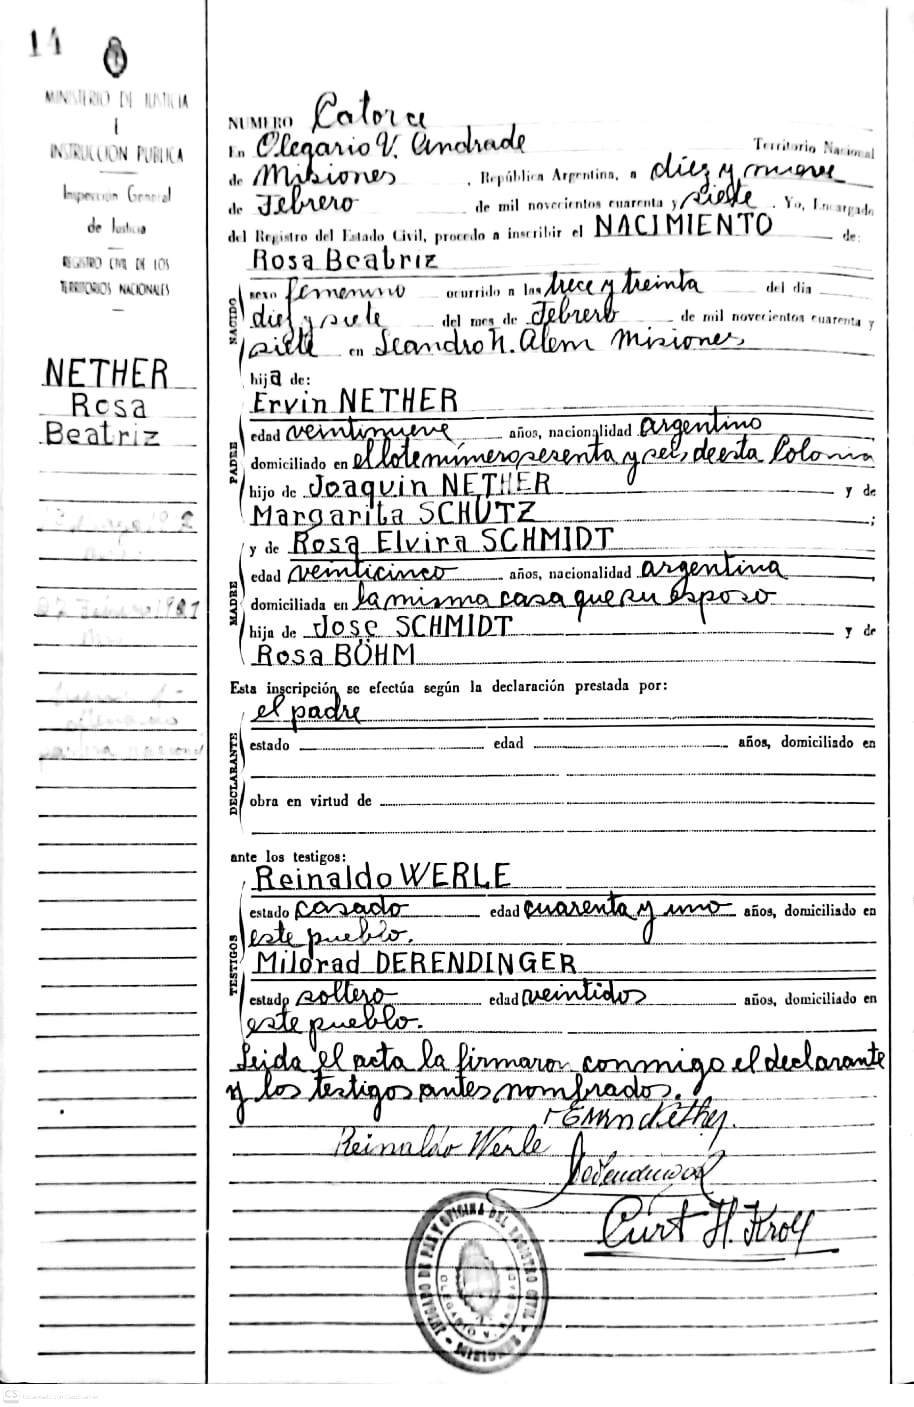 14
MINISTERIO DE JUSTICIA
E
INSTRUCCION PUBLICA
Inspección General
de Justicia
REGISTRO CIVIL DE LOS
TERRITORIOS NACIONALES
NETHER
Rosa
Beatriz
NUMERO Catorce
En Olegario V. Andrade Territorio Nacional
de Misiones, República Argentina, a diez y nueve
de Febrero de mil novecientos cuarenta y siete. Yo, Encargado
del Registro del Estado Civil, procedo a inscribir el NACIMIENTO de:
Rosa Beatriz
NACIDO
sexo femenino ocurrido a las trece y treinta del día
diez y siete del mes de Febrero de mil novecientos cuarenta y
siete en Leandro N. Alem Misiones
hija de:
PADRE
Ervin NETHER
edad veintinueve años, nacionalidad argentino
domiciliado en el lote número sesenta y seis de esta Colonia
hijo de Joaquin NETHER y de
Margarita SCHUTZ;
MADRE
y de Rosa Elvira SCHMIDT
edad veinticinco años, nacionalidad argentina,
domiciliada en la misma casa que su esposo
hija de Jose SCHMIDT y de
Rosa BÖHM
Esta inscripción se efectúa según la declaración prestada por:
DECLARANTE
el padre
estado edad años, domiciliado en
obra en virtud de
ante los testigos:
TESTIGOS
Reinaldo WERLE
estado casado edad cuarenta y uno años, domiciliado en
este pueblo.
Milorad DERENDINGER
estado soltero edad veintidos años, domiciliado en
este pueblo.
Leida el acta la firmaron conmigo el declarante
y los testigos antes nombrados.
Ervin Nether.
Reinaldo Werle
Curt H. Kroll
JUZGADO DE PAZ Y OFICINA DEL REGISTRO CIVIL
CS